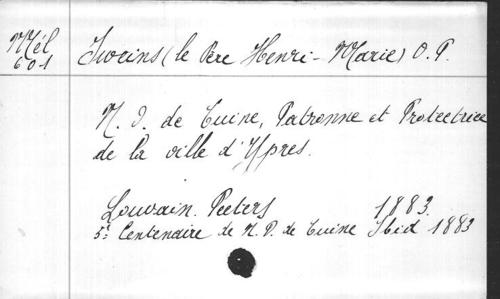 Mél
601
Iweins (le Père Henri-Marie) O.P.
N. D. de Tuine, Patronne et Protectrice
de la ville d'Ypres.
Louvain. Peeters 1883.
5e Centenaire de N. D. de Tuine Ibid 1883